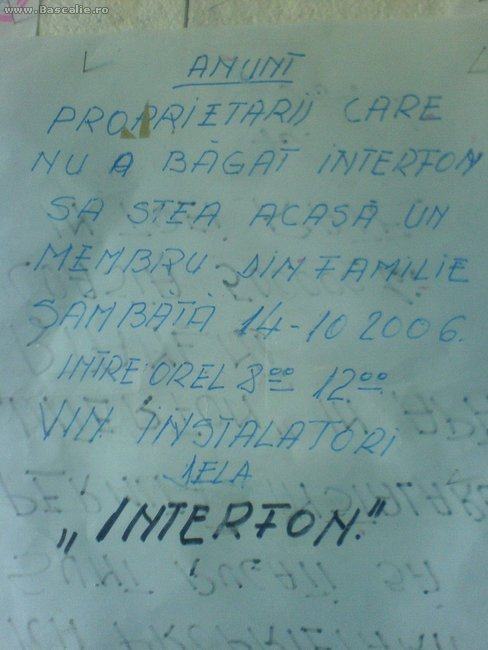 www.Bascalie.ro
ANUNT
PROPRIETARII CARE
NU A BĂGAT INTERFON
SA STEA ACASĂ UN
MEMBRU DIN FAMILIE
SAMBĂTĂ 14-10 2006.
INTRE OREL 8⁰⁰ 12⁰⁰.
VIN INSTALATORI
DELA
„INTERFON."